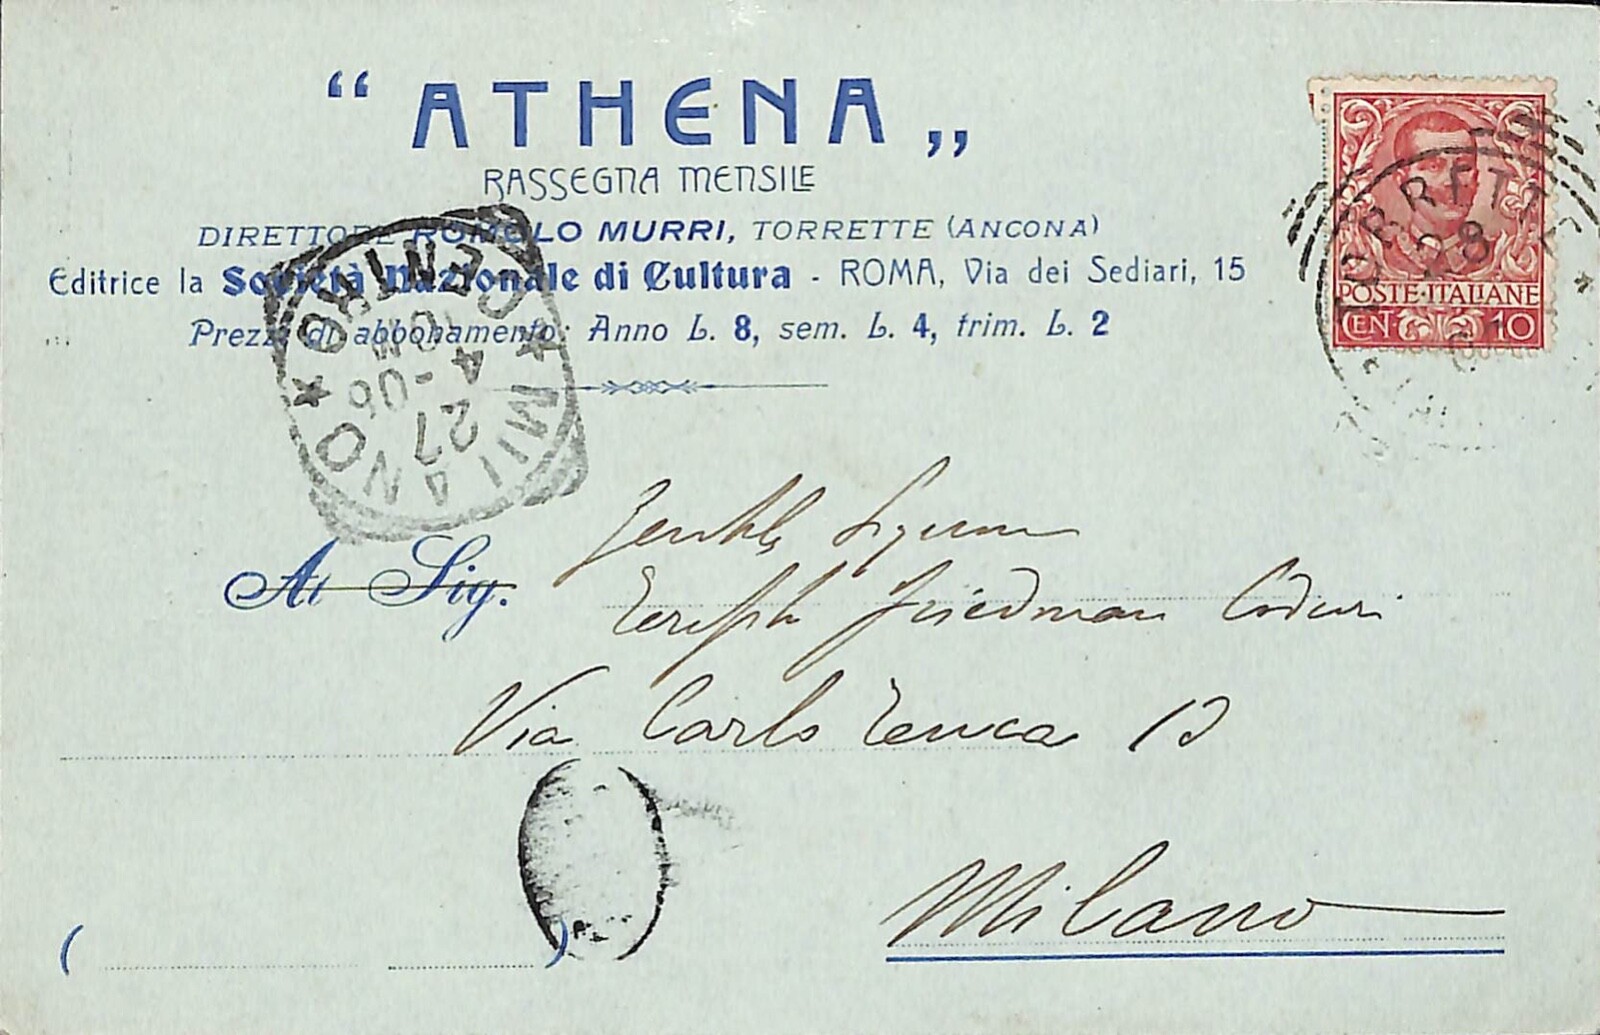 “ ATHENA „
RASSEGNA MENSILE
DIRETTORE ROMOLO MURRI, TORRETTE (ANCONA)
Editrice la Società Nazionale di Cultura - ROMA, Via dei Sediari, 15
Prezzi di abbonamento: Anno L. 8, sem. L. 4, trim. L. 2
POSTE·ITALIANE
CEN 10
TORRETTE
28
MILANO
CENTRO
27
4-06
10M
Gentile Signora
Al Sig.
Friedman Coduri
Via Carlo Tenca 13
Milano
( )